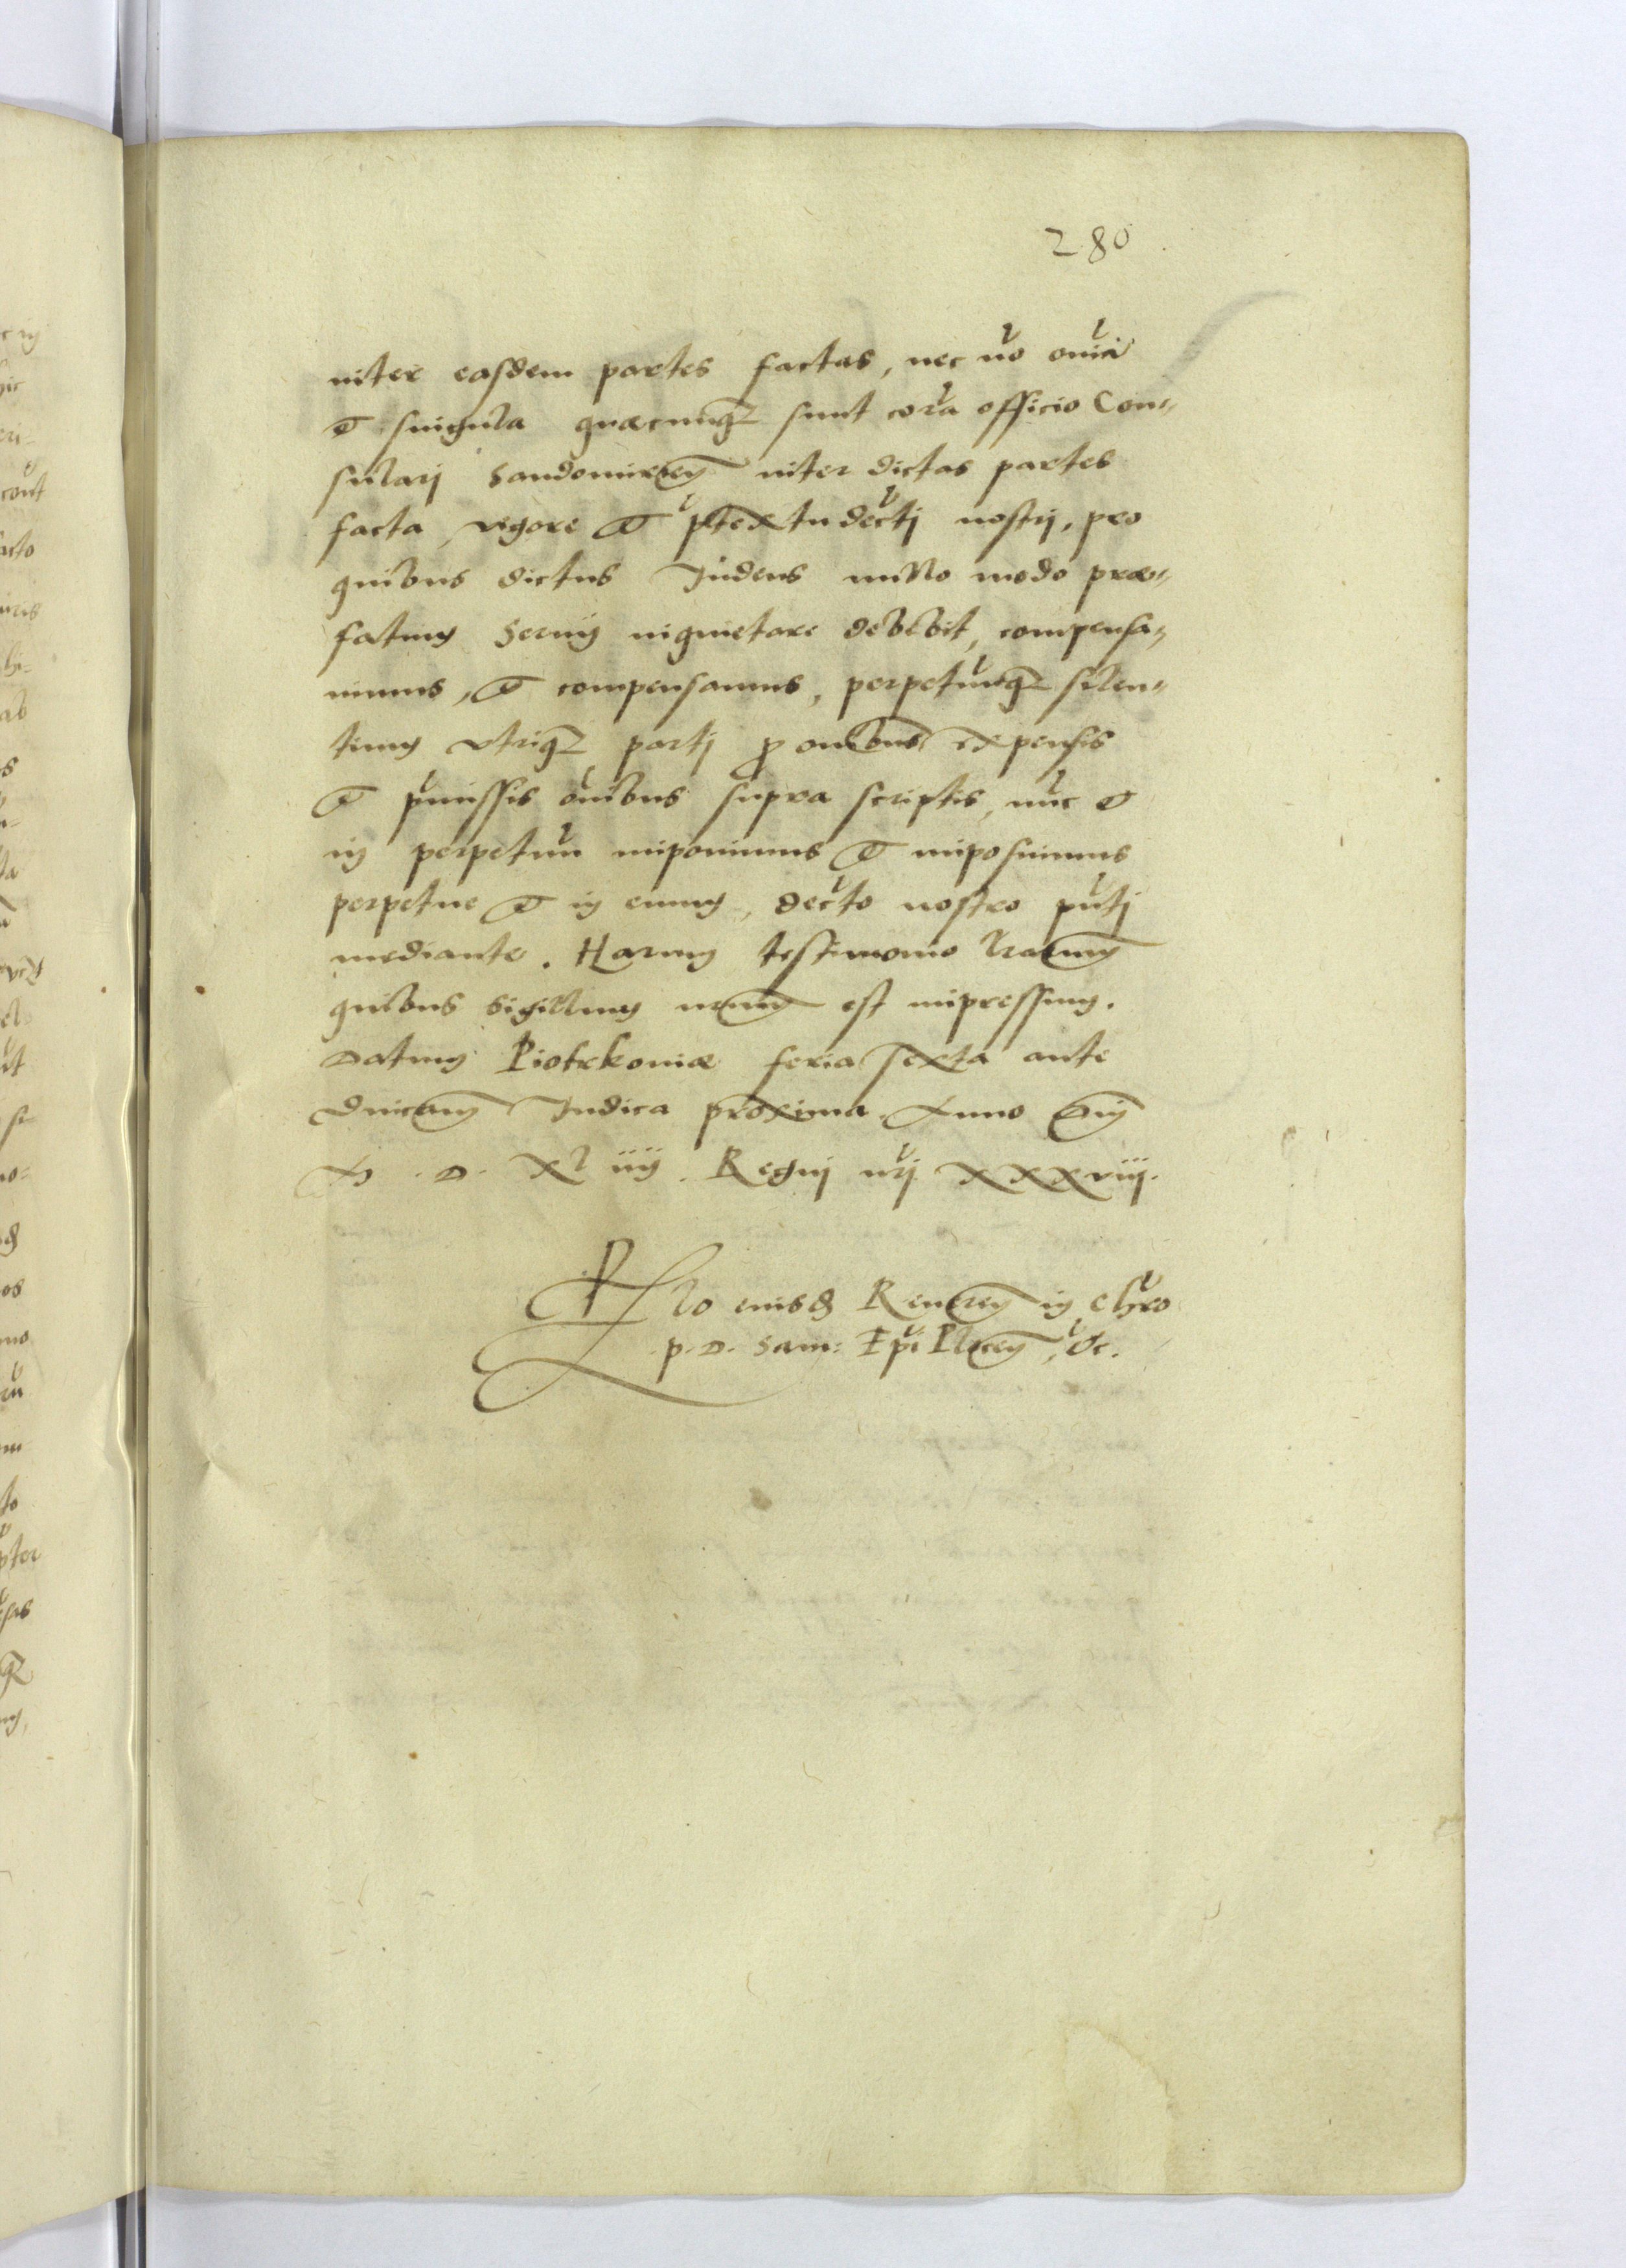 280
inter easdem partes factas, nec nō om̄ia
et singula quæcunq3 sunt corā officio Con-
sularj Sandomirieñ inter dictas partes
facta, vigore et ptextu dec̄tj nostrj, pro
quibus dictus Iudeus nullo modo præ-
fatum Servū inquietare debebit, compensa-
uimus, et compensamus, perpetuūq3 silen-
tium vtriq3 partj ꝓ om̄ibus expensis
et p̄missis om̄ibus supra scriptis, nūc et
in perpetuū imponimus et imposuimus
perpetue et in euum, dec̄to nostro p̄ntj
mediante. Harum testimonio lr̄arum
quibus sigillum nr̄um est impressum.
Datum Piotrkouiæ feria sexta ante
Dnicam Iudica proxima. Anno Dn̄i
M. D. XL iiij. Regnj nr̄j XXXviij.
Rlo eiusd Reueren in Chr̄o
p. D. Sam: Ep̄i Plocen̄, &c.